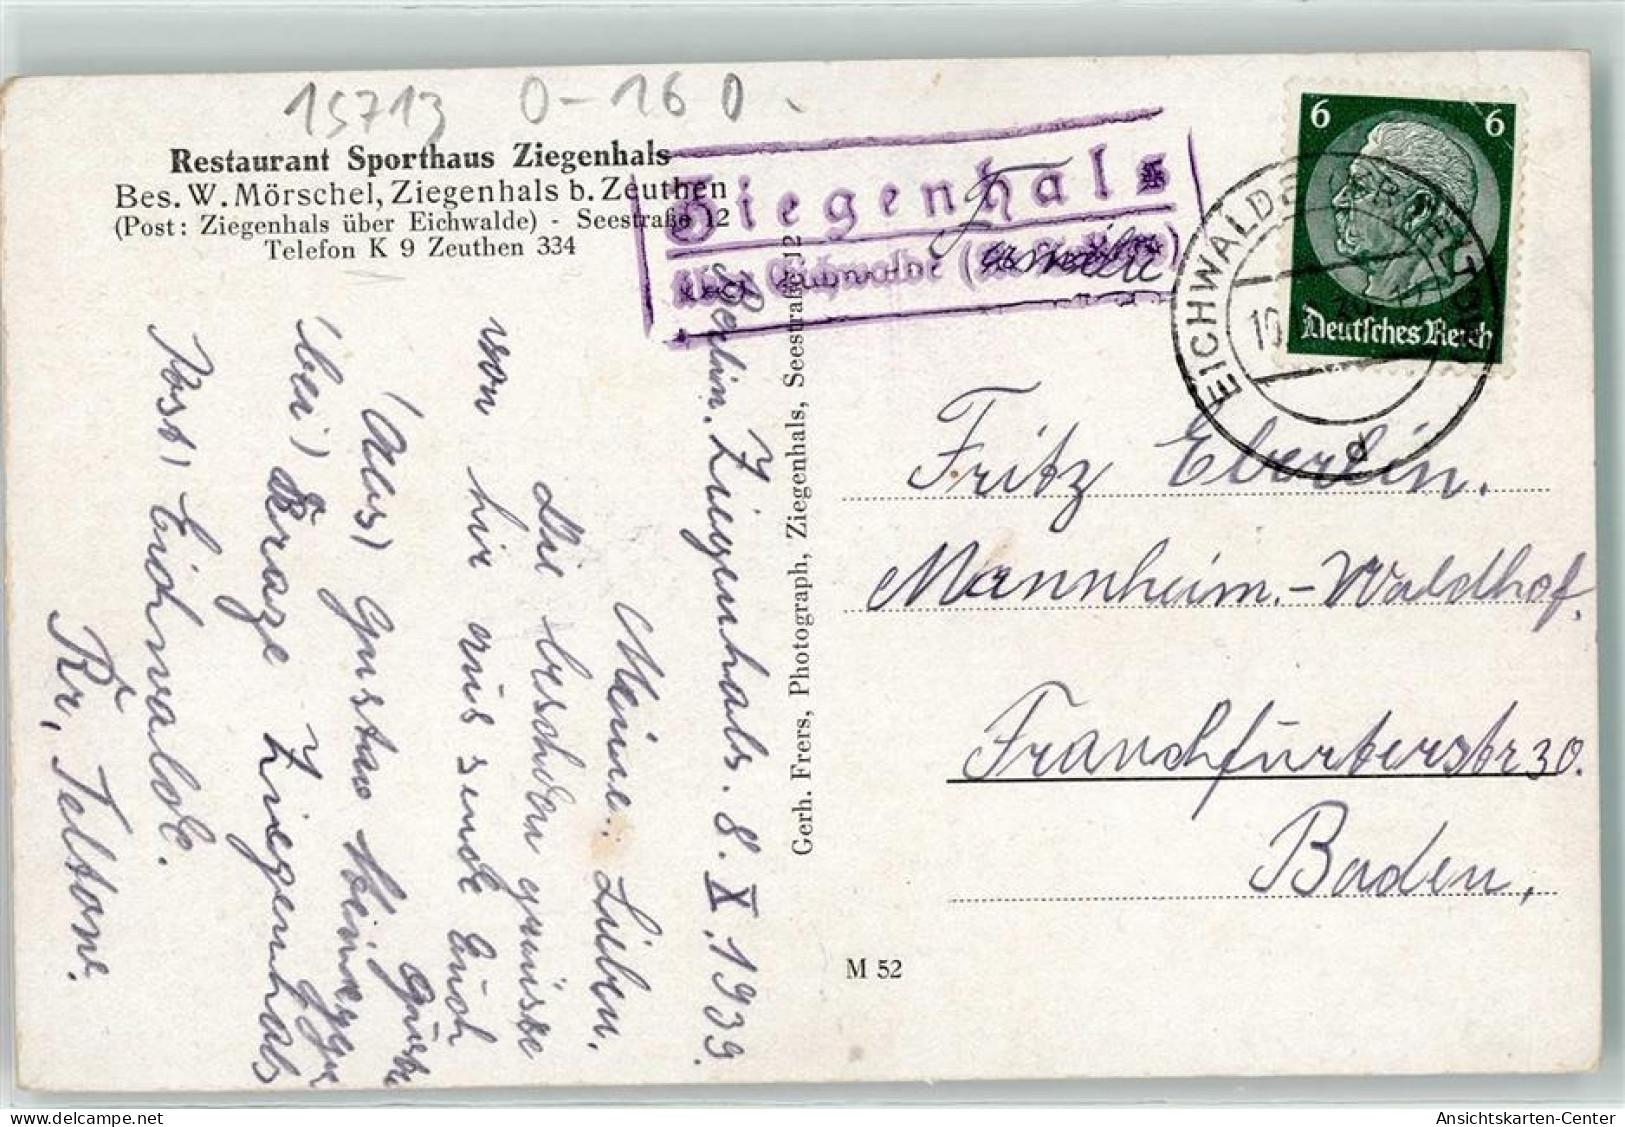 15713 0-16 0
Restaurant Sporthaus Ziegenhals
Bes. W. Mörschel, Ziegenhals b. Zeuthen
(Post: Ziegenhals über Eichwalde) - Seestraße 12
Telefon K 9 Zeuthen 334
Ziegenhals
über Eichwalde
6 6
Deutsches Reich
EICHWALDE
10
d
Familie
Fritz Eberlin.
Mannheim.-Waldhof.
Franchfürterstr 30.
Baden,
M 52
Gerh. Frers, Photograph, Ziegenhals, Seestraße 12
Berlin. Ziegenhals. 8. X. 1939.
Meine. Lieben.
Die herzlichen grüsse
von hir aus sende Euch
Gustav
(Aus)
bei) Ziegenhals
Post, Eichwalde.
Kr, Teltone.
Ansichtskarten-Center